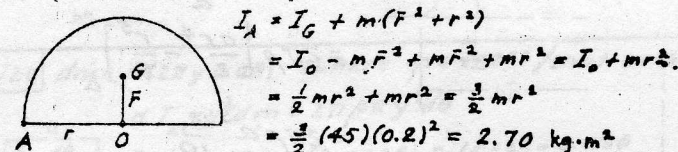 I_A = I_G + m(r̄² + r²)
= I_O - m r̄² + m r̄² + mr² = I_O + mr².
= 1/2 mr² + mr² = 3/2 mr²
= 3/2 (45)(0.2)² = 2.70 kg·m²
G
r̄
A r O